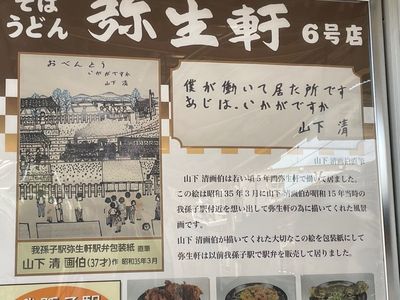 そば
うどん
弥生軒
6号店
おべんとう
いかがですか
山下 清
僕が働いて居た所です
あじは、いかがですか
山下 清
我孫子駅弥生軒駅弁包装紙 直筆
山下 清 画伯(37才)作 昭和35年3月
山下 清画伯直筆
山下 清画伯は若い頃5年間弥生軒で働いて居ました。
この絵は昭和35年3月に山下 清画伯が昭和15年当時の
我孫子駅付近を想い出して弥生軒の為に描いてくれた風景
画です。
山下 清画伯が描いてくれた大切なこの絵を包装紙にして
弥生軒は以前我孫子駅で駅弁を販売して居りました。